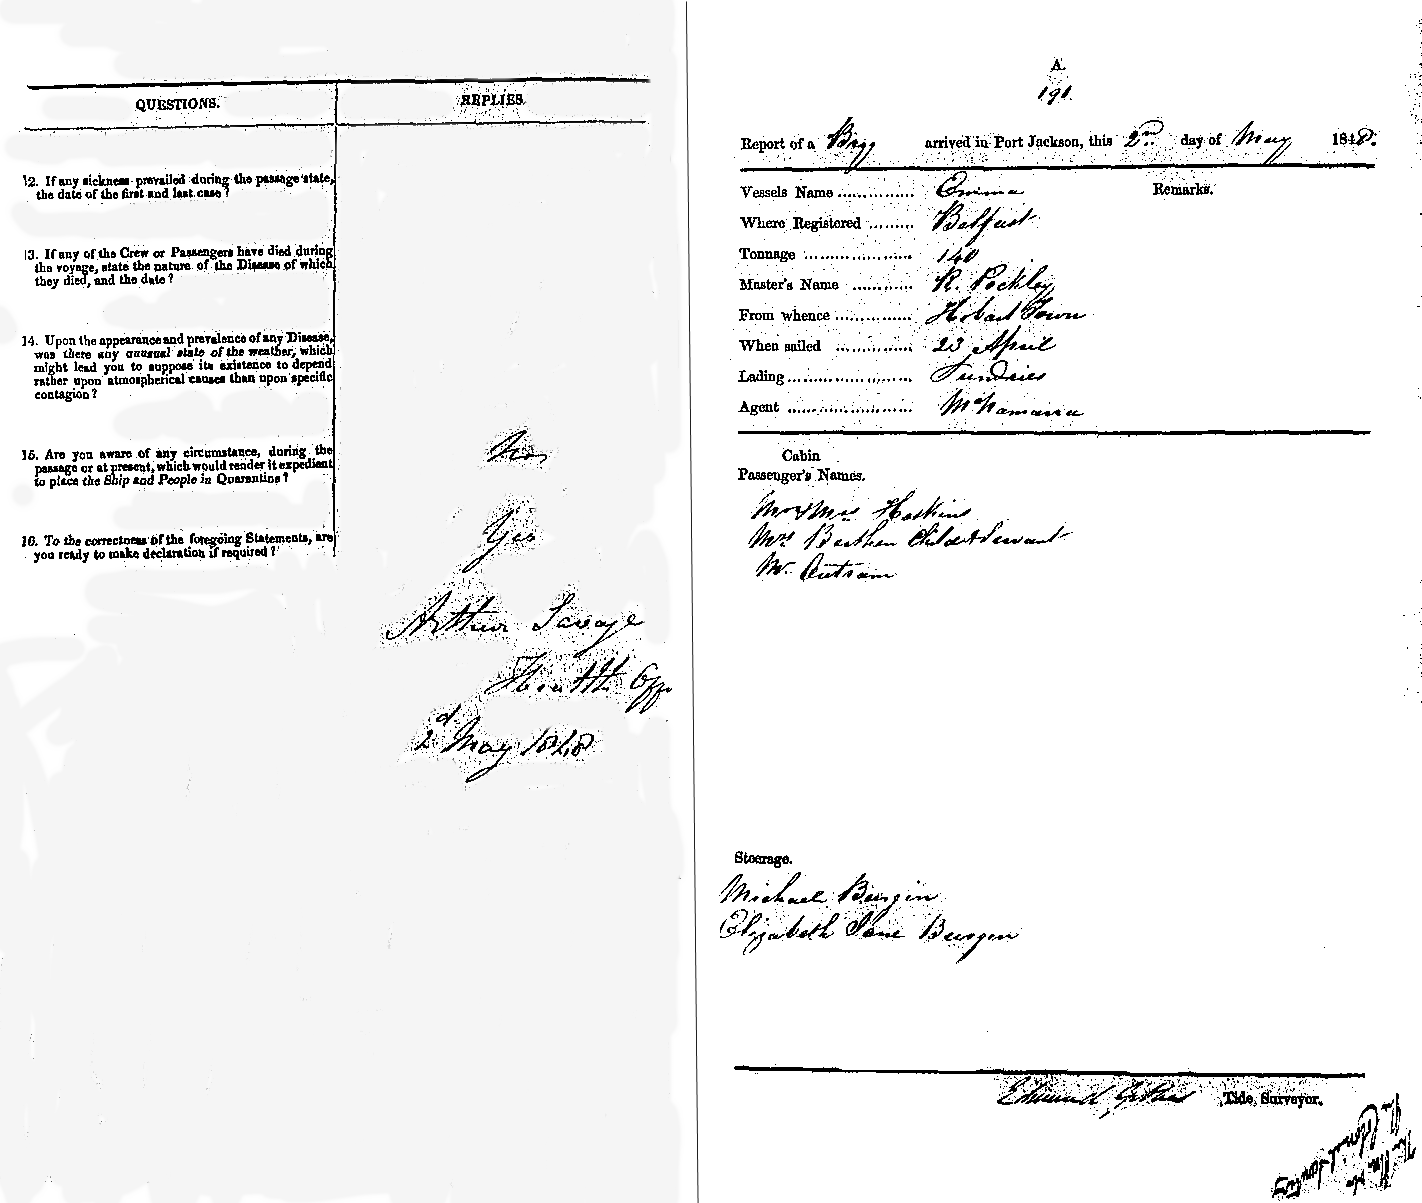 QUESTIONS.
REPLIES.
12. If any sickness prevailed during the passage state,
the date of the first and last case?
13. If any of the Crew or Passengers have died during
the voyage, state the nature of the Disease of which
they died, and the date?
14. Upon the appearance and prevalence of any Disease,
was there any unusual state of the weather, which
might lead you to suppose its existence to depend
rather upon atmospherical causes than upon specific
contagion?
15. Are you aware of any circumstance, during the
passage or at present, which would render it expedient
to place the Ship and People in Quarantine?
No
16. To the correctness of the foregoing Statements, are
you ready to make declaration if required?
Yes
Arthur Savage
Health Off
2d May 1848
A.
191.
Report of a Brig arrived in Port Jackson, this 2nd day of May 1848.
Vessels Name .............. Emma
Remarks.
Where Registered ......... Belfast
Tonnage ..................... 140
Master's Name ............ R. Pockley
From whence ............... Hobart Town
When sailed ............... 23 April
Lading ......................... Sundries
Agent ......................... McNamara
Cabin
Passenger's Names.
Mr & Mrs Hoskins
Mrs Child & Servant
Mr. Outram
Steerage.
Michael Burgin
Elizabeth Jane Burgen
Edmund Tide Surveyor.